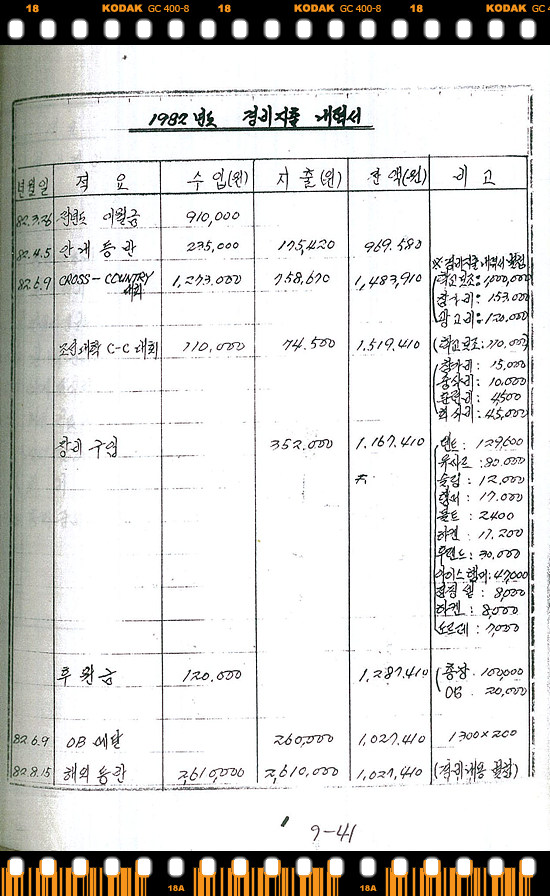 18 KODAK GC 400-8 18 KODAK GC 400-8 18 KODAK GC 4
1982년도 경비지출 내역서
년월일 적요 수입(원) 지출(원) 잔액(원) 비고
82.3.26 전년도 이월금 910,000
82.4.5 안개등반 235,000 175,420 969.580
※경비지출 내역서 별첨
82.6.9 CROSS-COUNTRY 대회 1,273.000 758,670 1,483,910 학교보조: 1,000,000
참가비: 153.000
광고비: 120.000
조선대학 C-C 대회 110,000 74.500 1.519.410 (학교보조: 110,000)
참가비: 15,000
: 10,000
: 4500
회식비: 45,000
장비 구입 352.000 1.167.410 텐트: 129600
: 80.000
슬링: 12,000
: 17.000
볼트: 2400
: 17.200
: 30.000
아이스햄머: 47,000
: 8,000
하켄: 8,000
: 7,000
후원금 120.000 1.287.410 총장. 100,000
OB. 20,000
82.6.9 OB 메달 260,000 1,027,410 1300×200
82.8.15 해외등반 2,610,000 2,610,000 1,027,410 (경비내용 별첨)
9-41
18A 18A